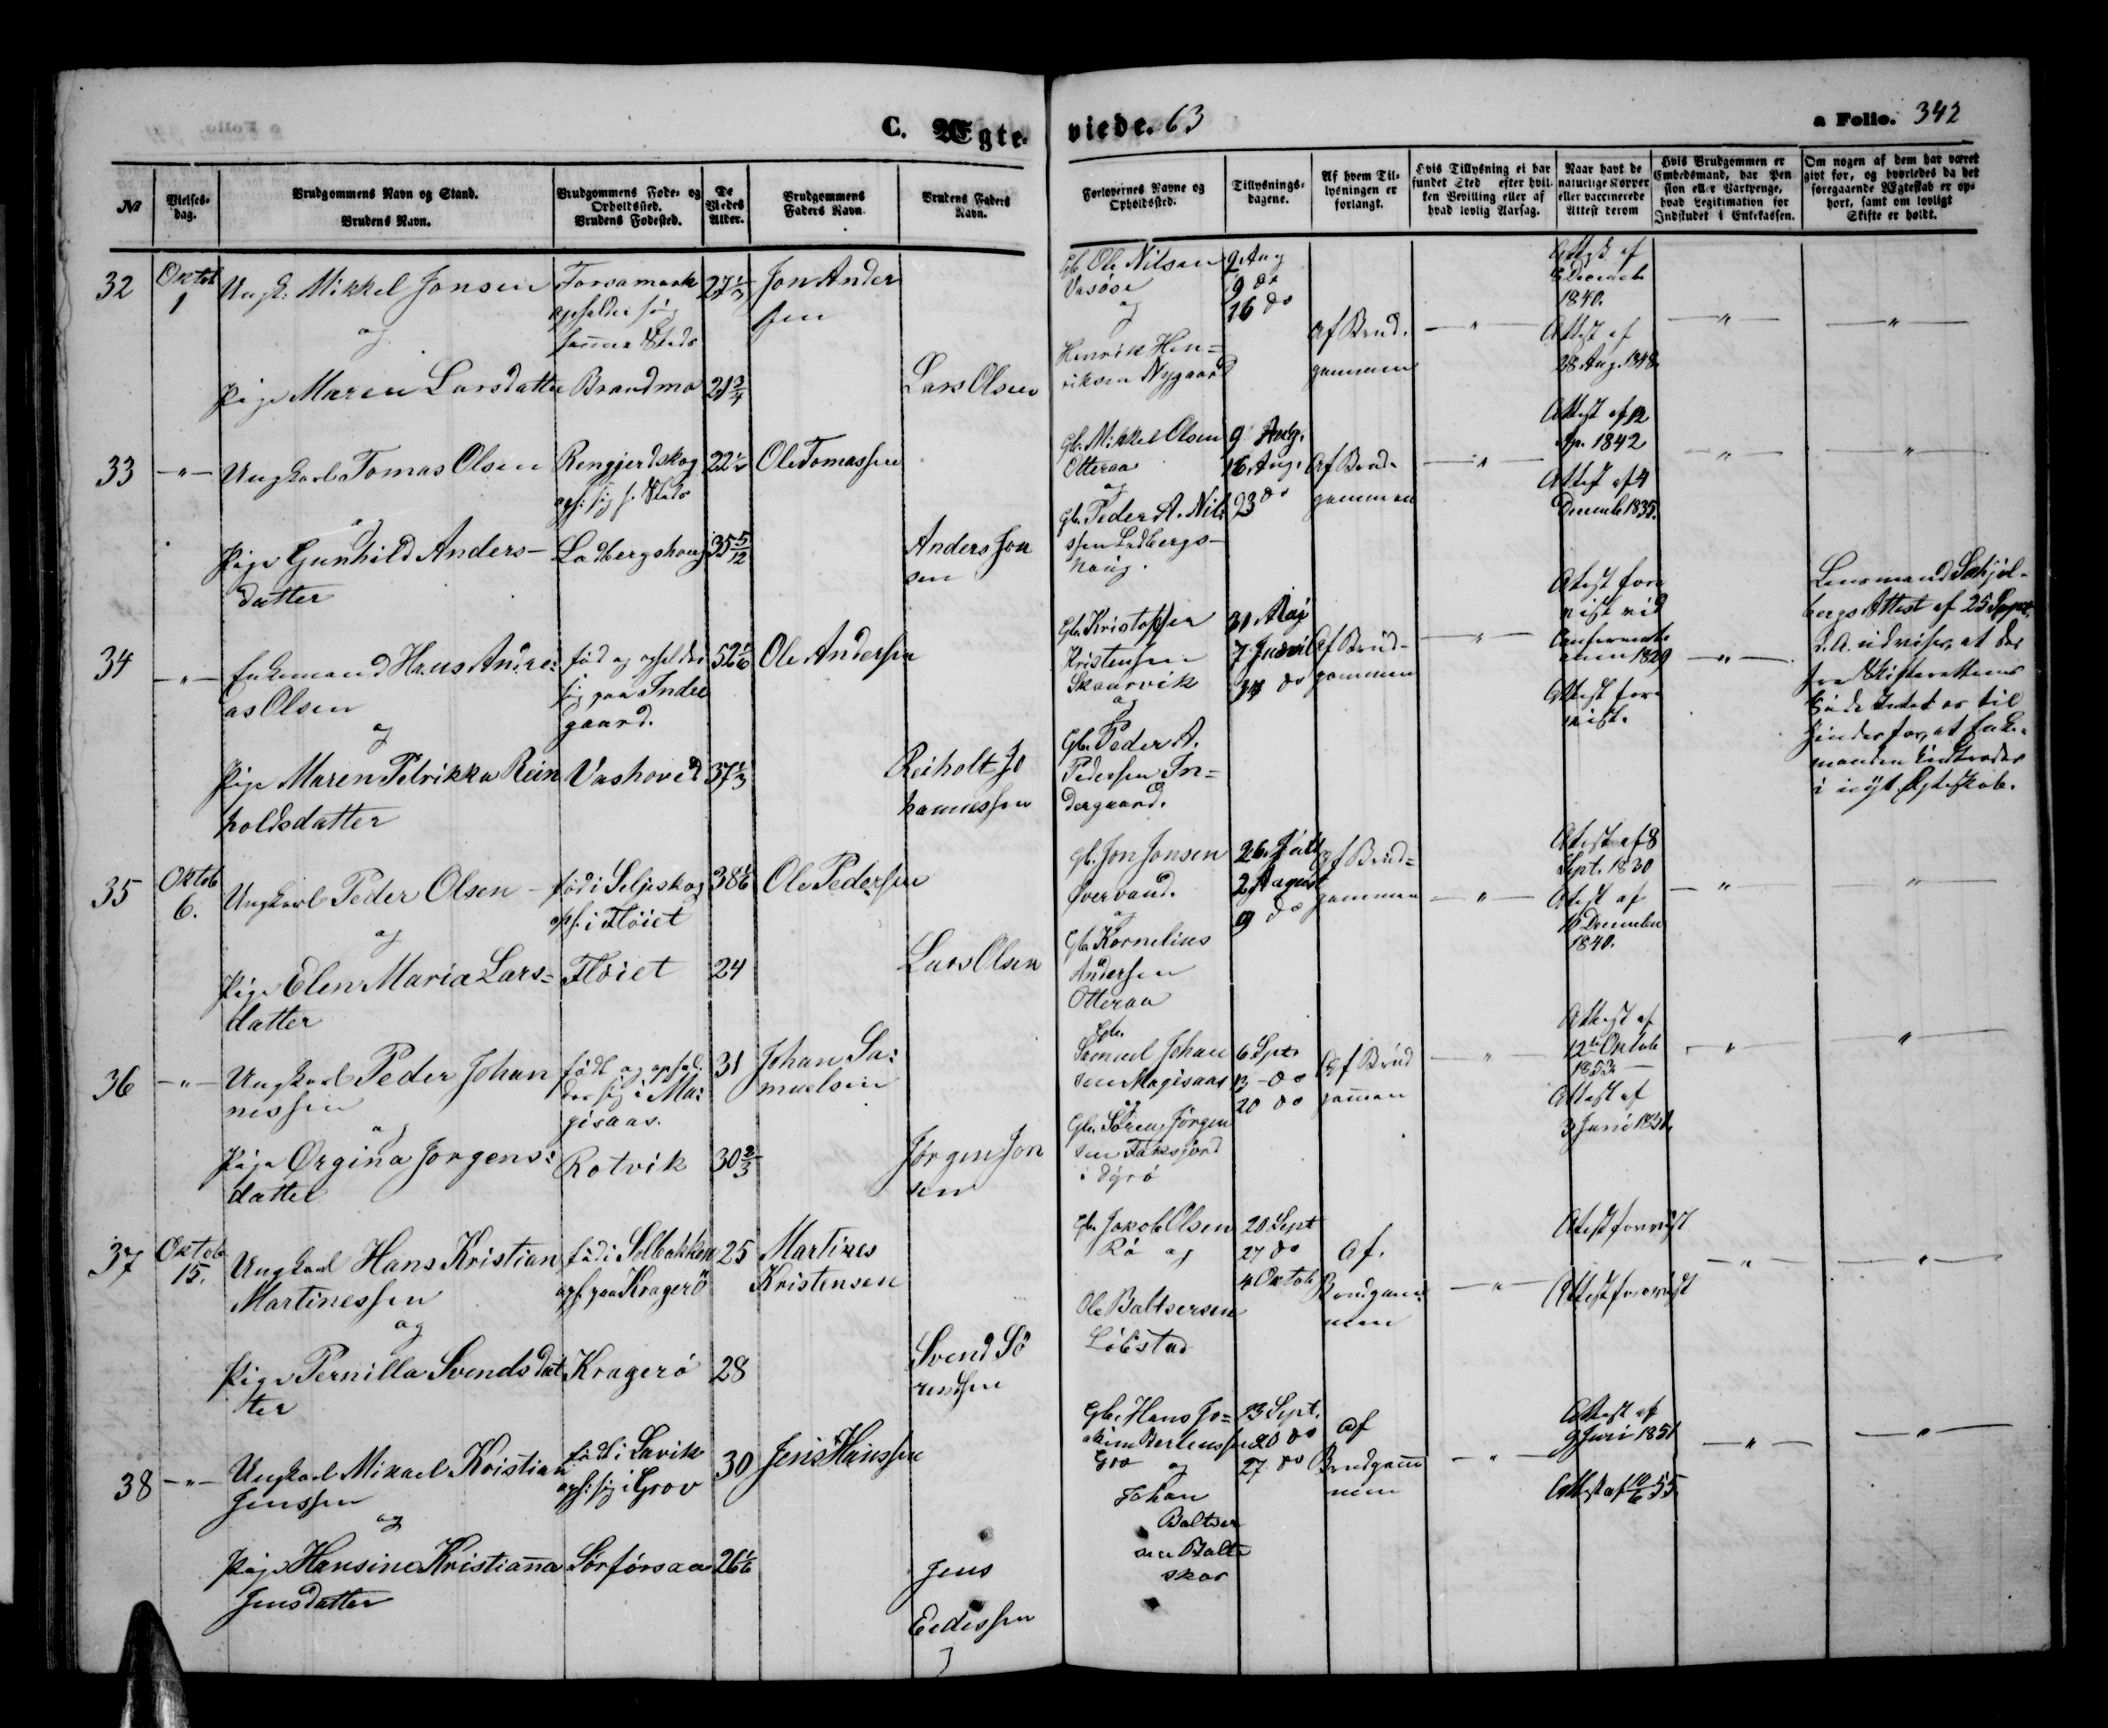 C. Ægte-
viede. 63
a Folio. 342
№
Vielses-
dag.
Brudgommens Navn og Stand.
Brudens Navn.
Brudgommens Føde- og
Opholdsted.
Brudens Fødested.
De
Viedes
Alder.
Brudgommens
Faders Navn.
Brudens Faders
Navn.
Forlovernes Navne og
Opholdsted.
Tillysnings-
dagene.
Af hvem Til-
lysningen er
forlangt.
Hvis Tillysning ei har
fundet Sted efter hvil-
ken Bevilling eller af
hvad lovlig Aarsag.
Naar havt de
naturlige Kopper
eller vaccinerede
Attest derom
Hvis Brudgommen er
Embedsmand, har Pen
sion eller Vartpenge,
hvad Legitimation for
Indskudet i Enkekassen.
Om nogen af dem har været
givt før, og hvorledes da det
foregaaende Ægteskab er op-
hørt, samt om lovligt
Skifte er holdt.
32
Oktob
1
Ungk: Mikkel Jonsen
og
Pige Maren Larsdatter
Forsamark
opholder sig
samme Steds
Brandmo
27 1/3
21 3/4
Jon Ander
sen
Lars Olsen
Gb. Ole Nilsen
Vasøse
og
Henrik Hen=
riksen Nygaard
2 Aug
9 do
16 do
Af Brud.
gommen
Attest af
1840.
Attest af
28 Aug. 1848.
33
-"-
Ungkarl Tomas Olsen
og
Pige Gunhild Anders-
datter
Rengjerdskog
oph: sig s. Steds
Ladbergshoug
22 1/2
35 5/12
Ole Tomassen
Anders Jon
sen
Gb. Mikkel Olsen
Otteraa
og
Gb. Peder A. Nil-
ssen Ladbergs-
haug.
9 Aug.
16 Aug.
23 do
Af Brud-
gommen
Attest af 12
Ap. 1842
Attest af 4
Decemb 1835.
34
-"-
Enkemand Hans Andre:
as Olsen
og
Pige Maren Petrikka Rein
holdsdatter
fød og opholder
sig paa Indre
gaard.
Vashoved
52 1/6
37 1/3
Ole Andersen
Reiholt Jo
hannessen
Gb. Kristoffer
Kristensen
Skaarvik
og
Gb. Peder A.
Pedersen In=
dergaard.
31 Maj
7 Juni
14 do
Af Brud-
gommen
Atest fore
vist ved
Confirmati
onen 1829
Attest fore
vist.
Lensmand Schjel-
bergs Attest af 25 Sept.
d. A. udviser, at der
fra Skifterettens
Side Intet er til
Hinder for, at Enke-
manden indtræder
i nyt Ægteskab.
35
Oktob
6.
Ungkarl Peder Olsen
og
Pige Elen Maria Lars=
datter
fød i Seljeskog
oph. i Fløiet
Fløiet
38 1/6
24
Ole Pedersen
Lars Olsen
Gb. Jon Jonsen
Øvervand.
og
Gb. Kornelius
Andersen
Otteraa
26. Juli
2 August
9 do
Af Brud=
gommen
Atest af 8
Sept. 1830
Atest af
December
1840.
36
-"-
Ungkarl Peder Johan
nessen
og
Pige Orgina Jorgens:
datter
født og ophol
der sig i Ma:
gisaas.
Rotvik
31
30 2/3
Johan Sa:
muelsen
Jørgen Jon
sen
Gbr.
Samuel Johan
sen Magisaas
og
Gbr. Søren Jørgen
sen Faksfjord
i Dyrø
6 Sept.
13 do
20 do
Af Brud
gommen
Attest af
12te Oktob
1833
Attest af
3 Juni 1831.
37
Oktob
15.
Ungkarl Hans Kristian
Martinessen
og
Pige Pernilla Svends dat
ter
fød i Solbakken
oph. paa Kragerø
Kragerø
25
28
Martines
Kristensen
Svend Sö
rensen
Gb. Jakob Olsen
Rø og
Ole Baltsersen
Løbstad
20 Sept
27 do
4 Oktob
Af.
Brudgom:
men
Atest forevist
Attest forevist
38
-"-
Ungkarl Mikael Kristian
Jenssen
og
Pige Hansine Kristianna
Jensdatter
født i Savik
oph: sig i Grov
Sørforsaa
30
26 1/6
Jens Hanssen
Jens
Eedissen
Gbr. Hans Jo=
akim Bertenssen
Grov og
Johan
Baltser
sen Balte
skar
13 Sept.
20 do
27 do
Af
Brudgom
men
Attest af
9 Juni 1851
Attest af 10/6 55